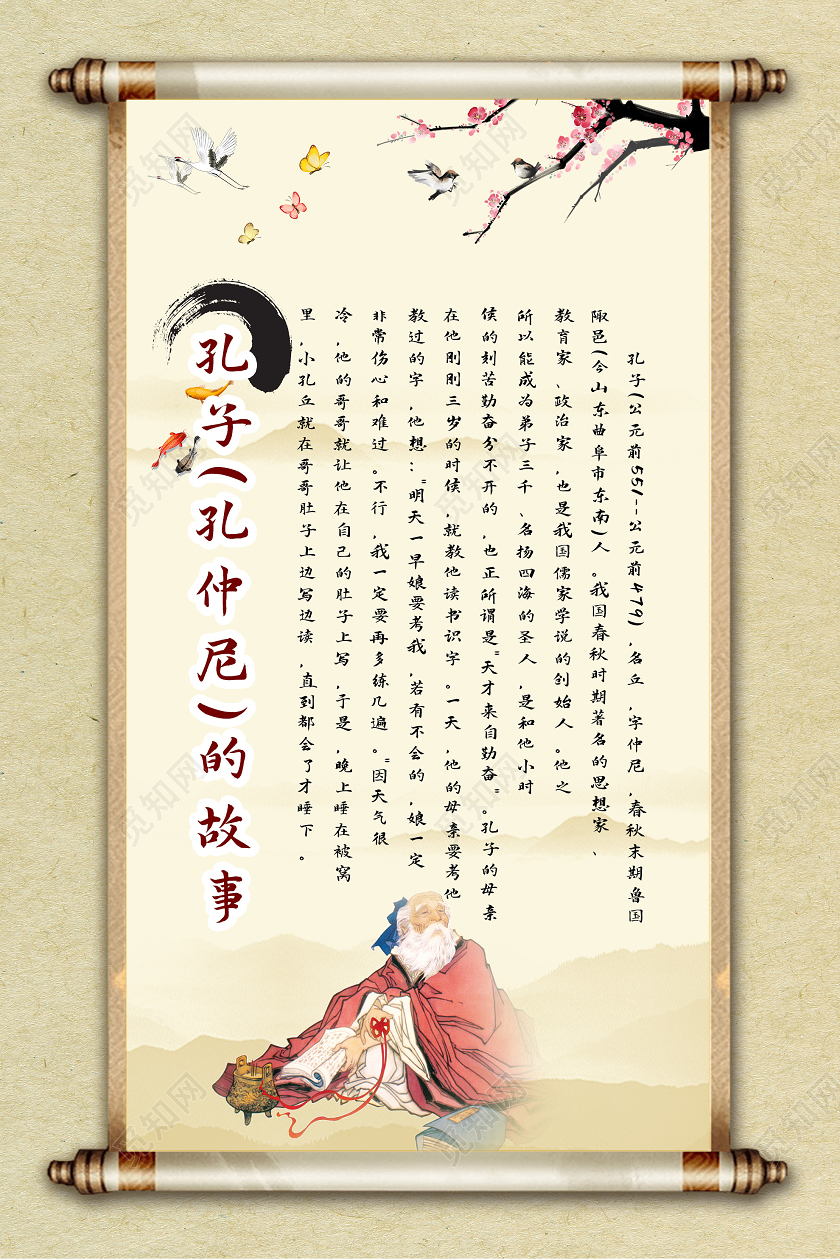 孔子(公元前551--公元前479),名丘,字仲尼,春秋末期鲁国
陬邑(今山东曲阜市东南)人。我国春秋时期著名的思想家、
教育家、政治家,也是我国儒家学说的创始人。他之
所以能成为弟子三千、名扬四海的圣人,是和他小时
侯的刻苦勤奋分不开的,也正所谓是"天才来自勤奋"。孔子的母亲
在他刚刚三岁的时侯,就教他读书识字。一天,他的母亲要考他
教过的字,他想:"明天一早娘要考我,若有不会的,娘一定
非常伤心和难过。不行,我一定要再多练几遍。"因天气很
冷,他的哥哥就让他在自己的肚子上写,于是,晚上睡在被窝
里,小孔丘就在哥哥肚子上边写边读,直到都会了才睡下。
孔子(孔仲尼)的故事
觅知网